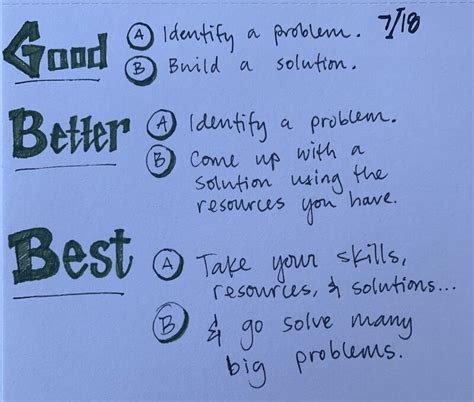 Good Ⓐ Identify a problem. 7/18
Ⓑ Build a solution.
Better Ⓐ Identify a problem.
Ⓑ Come up with a
solution using the
resources you have.
Best Ⓐ Take your skills,
resources, & solutions...
Ⓑ & go solve many
big problems.